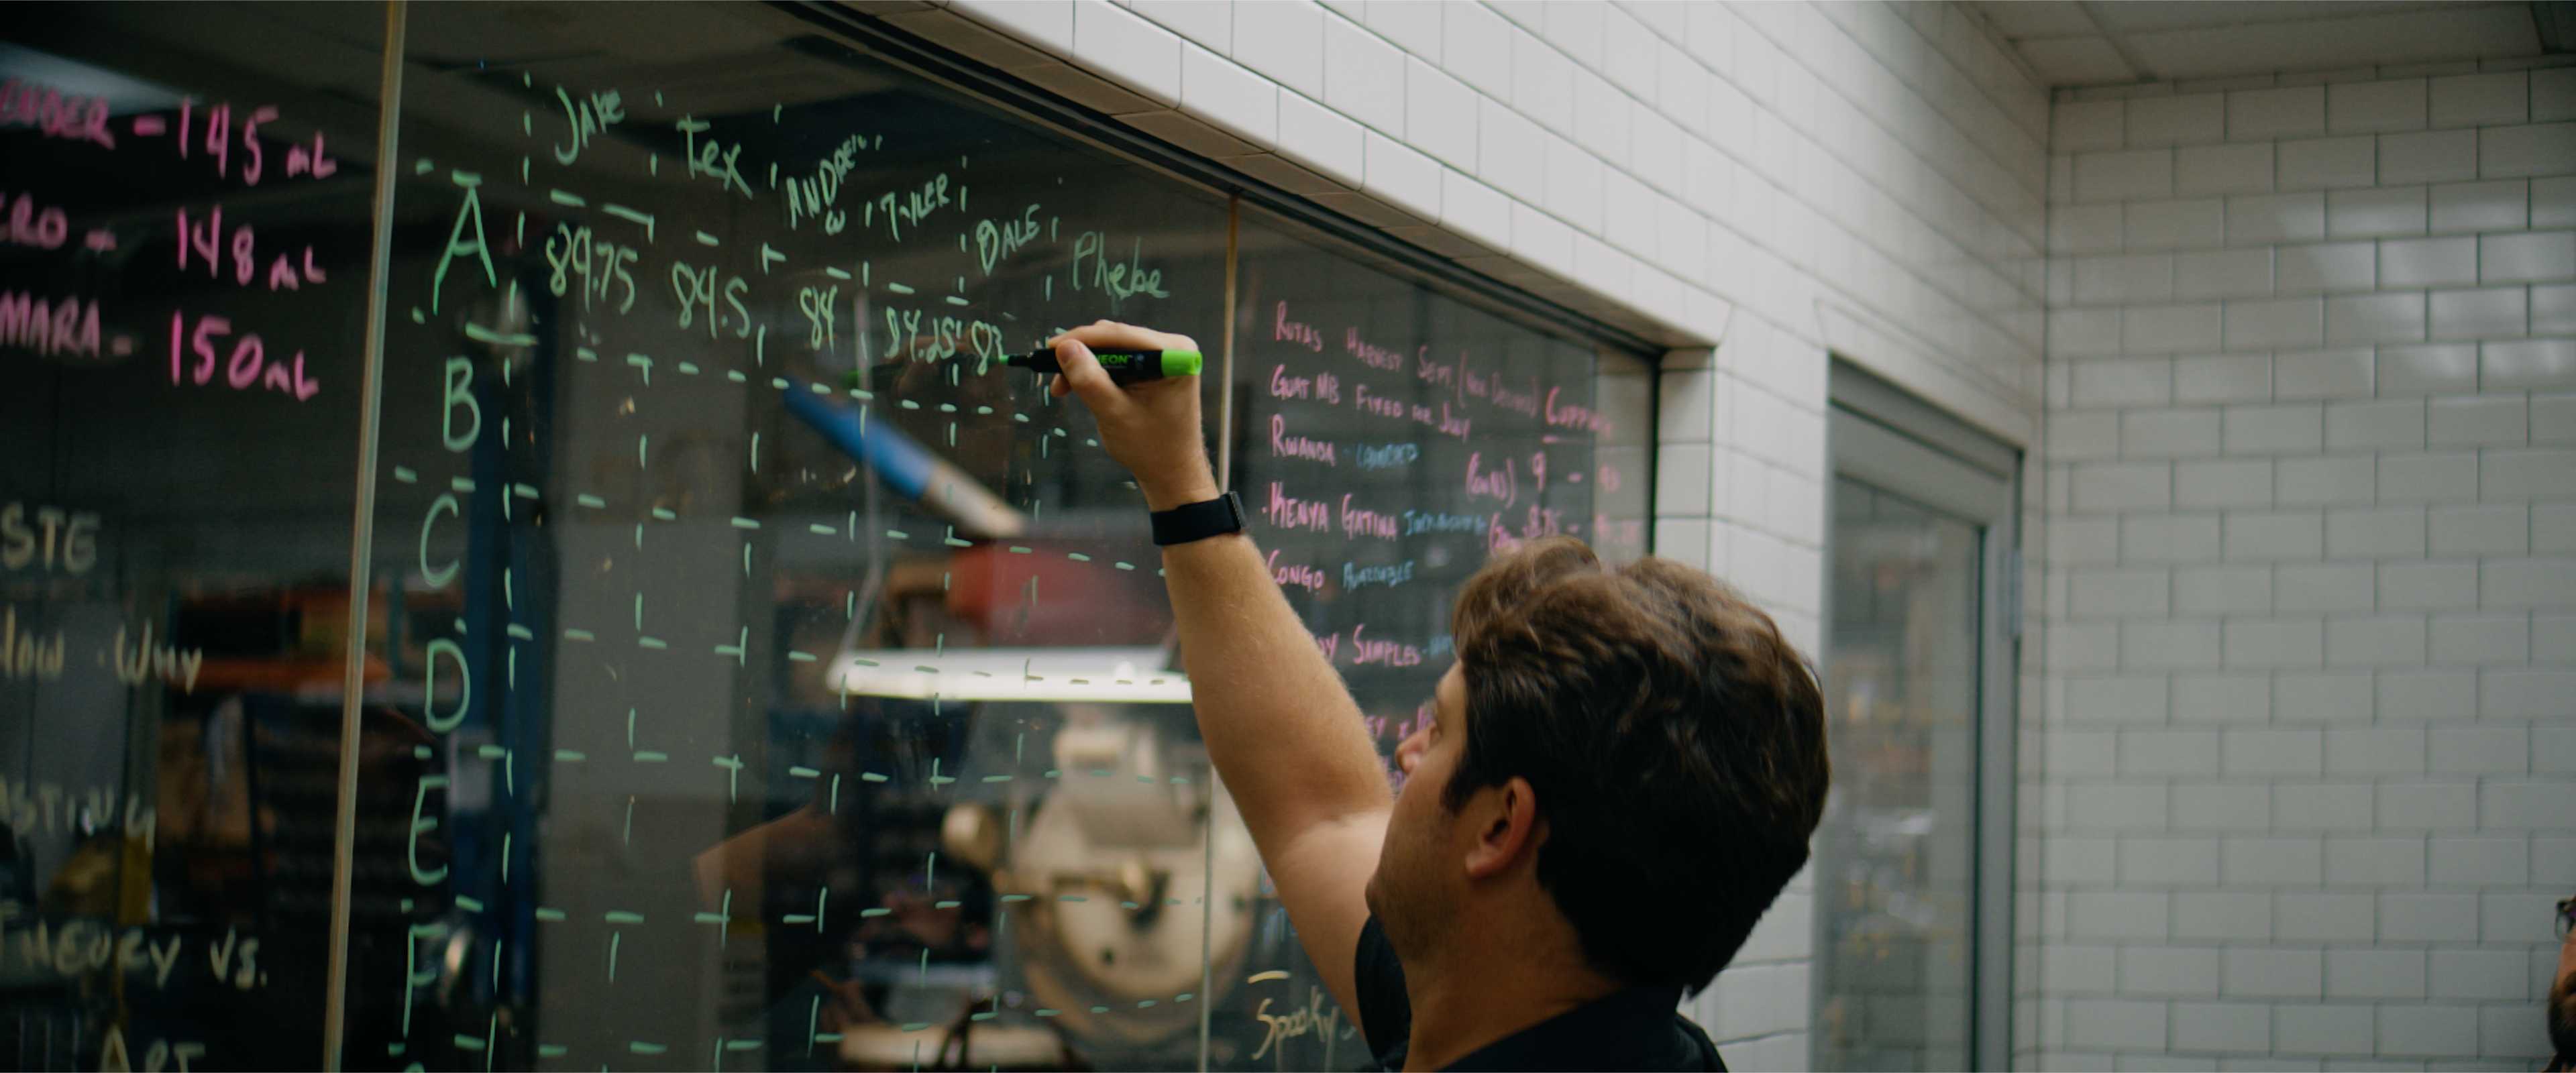 ENDER - 145 mL
CRO - 148 mL
MARA - 150 mL
STE
HOW · WHY
ASTING
THEORY VS.
ART
JAKE TEX ANDREW TYLER DALE Phebe
A 89.75 84.5 84 84.25 83
B
C
D
E
F
NEON
RUTAS HARVEST SEPT.
GUAT MB FIXED FOR JULY
RWANDA - LAUNCHED 9 -
· KENYA GATINA
CONGO AVAILABLE
SAMPLES
Spooky